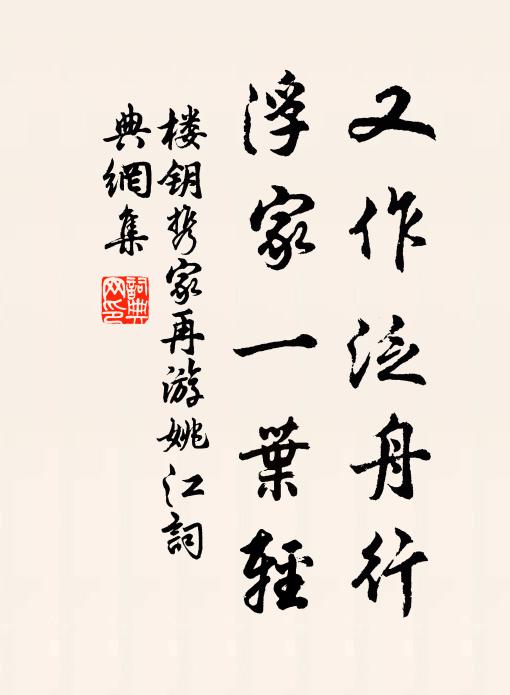 又作泛舟行
浮家一葉輕
楼钥携家再游姚江詞
典網集
詞典
网印